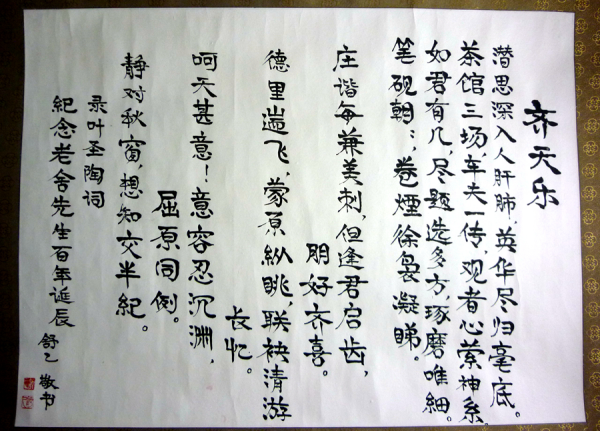 齐天乐
潜思深入人肝肺，英华尽归毫底。
茶馆三场，车夫一传，观者心萦神系。
如君有几，尽题选多方，琢磨唯細。
笔硯朝朝，卷煙徐袅凝睇。
庄谐每兼美刺，但逢君启齿，
朋好齐喜。
德里遄飞，蒙原纵眺，联袂清游
长忆。
呵天甚意！意容忍沉渊，
屈原同例。
静对秋窗，想知交半紀。
录叶圣陶词
紀念老舍先生百年诞辰
舒乙 敬书